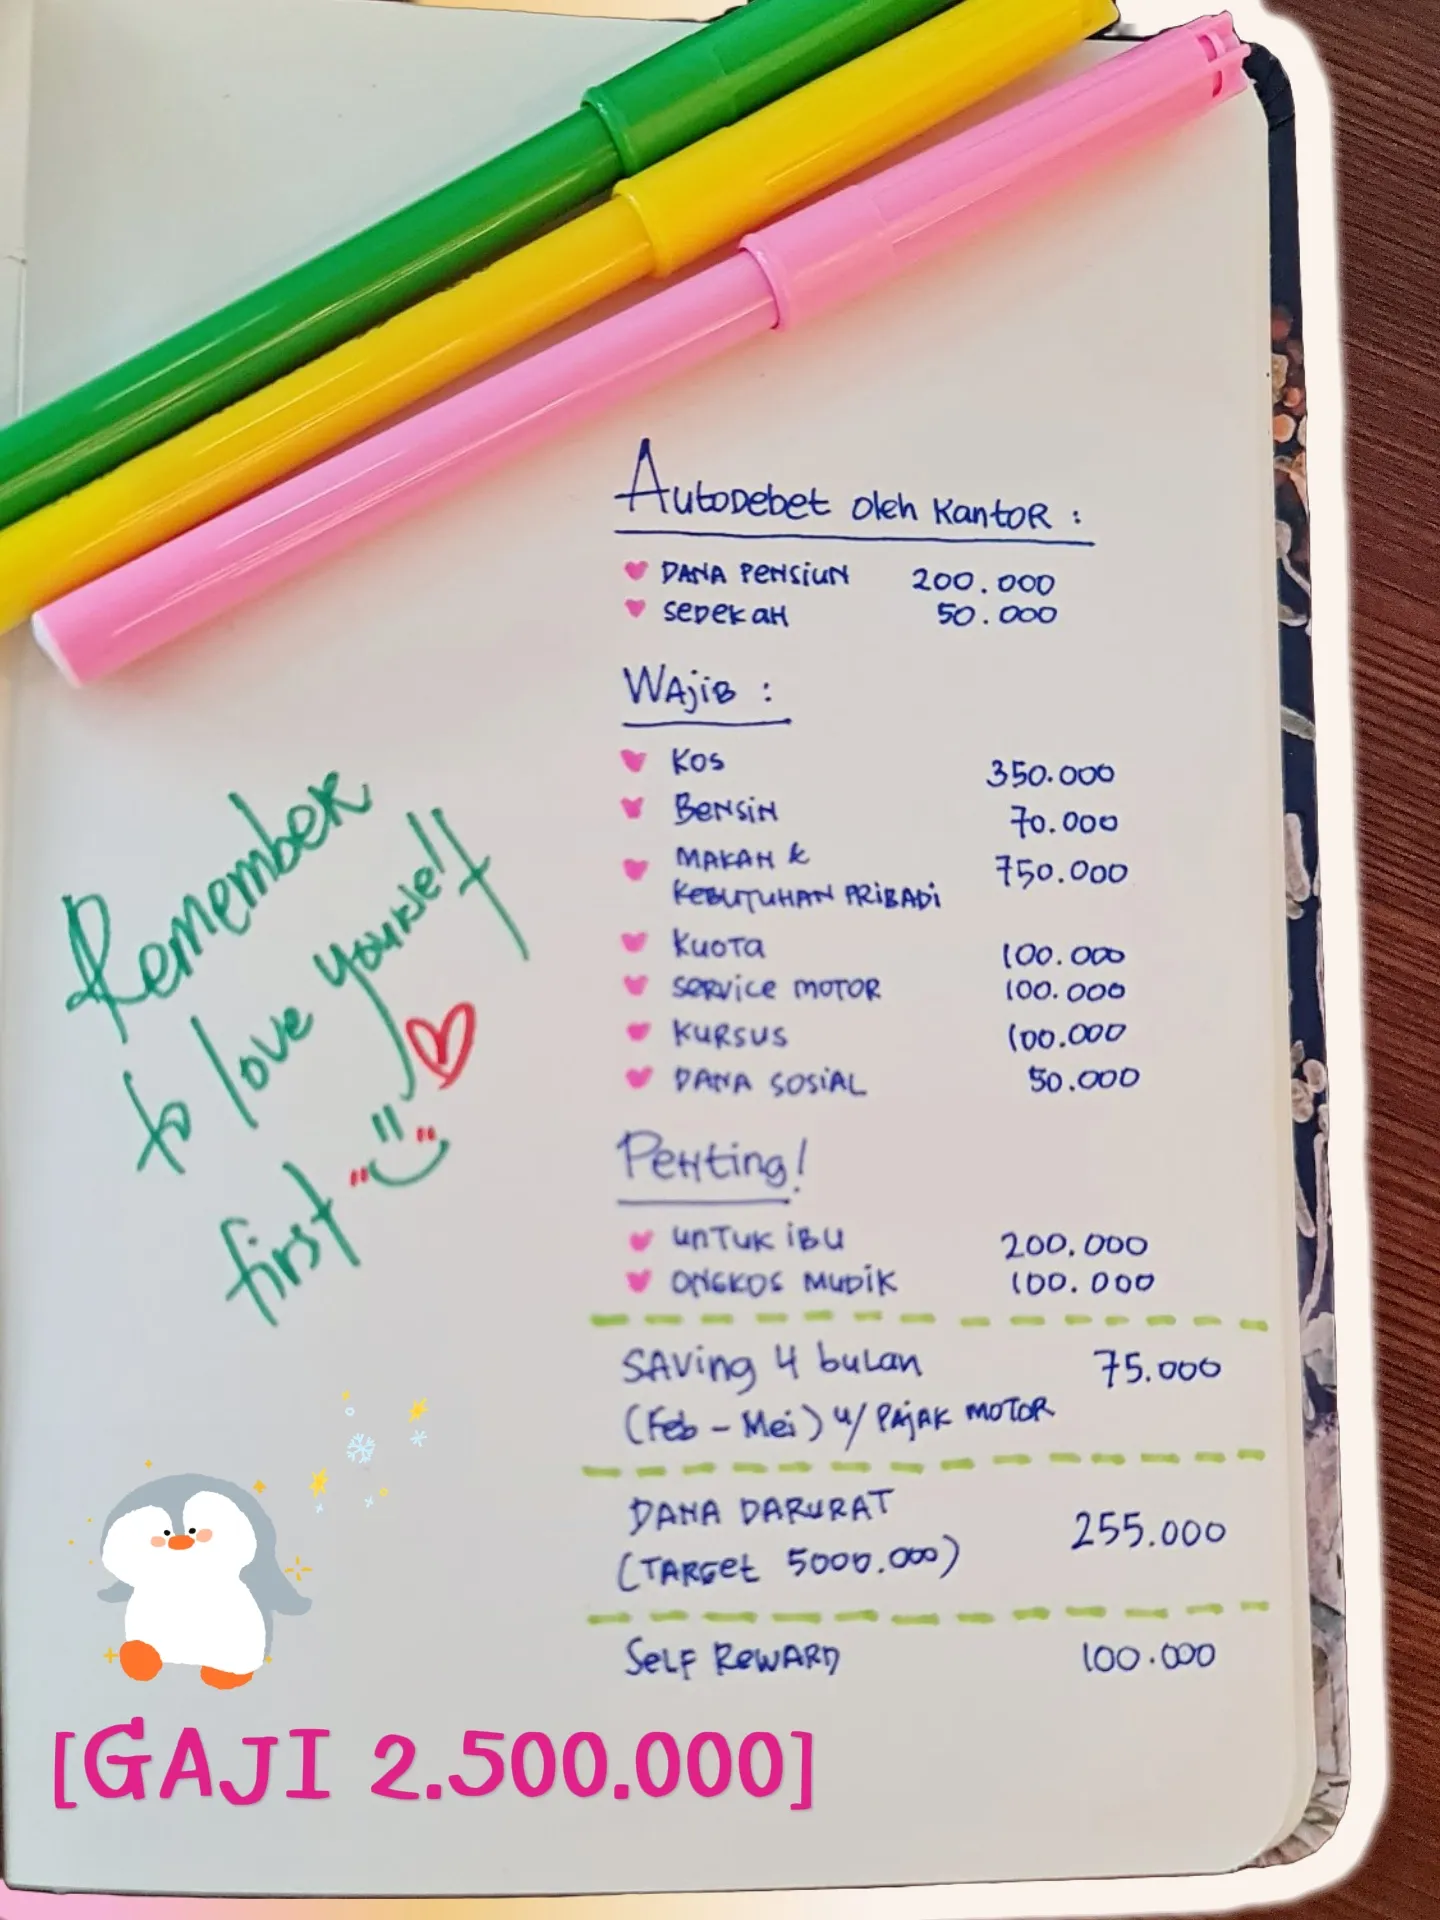 Autodebet oleh Kantor :
Dana Pensiun 200.000
Sedekah 50.000
Wajib :
Kos 350.000
Bensin 70.000
Makan &
Kebutuhan Pribadi 750.000
Kuota 100.000
Service Motor 100.000
Kursus 100.000
Dana Sosial 50.000
Penting!
Untuk Ibu 200.000
Ongkos Mudik 100.000
Saving 4 bulan 75.000
(Feb - Mei) u/ Pajak Motor
Dana Darurat 255.000
(Target 5000.000)
Self Reward 100.000
Remember
to love yourself
first
[GAJI 2.500.000]